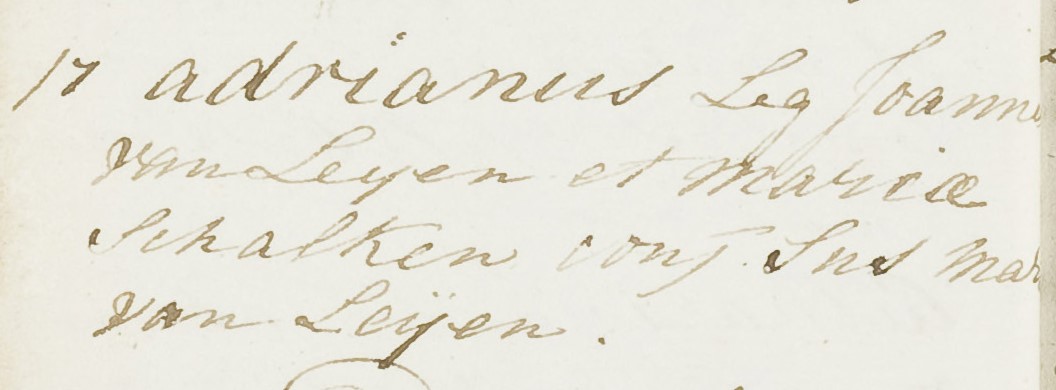 17 adrianus Leg Joannis
van Leyen et Mariæ
Schalken conj. Sus Mar
van Leijen.